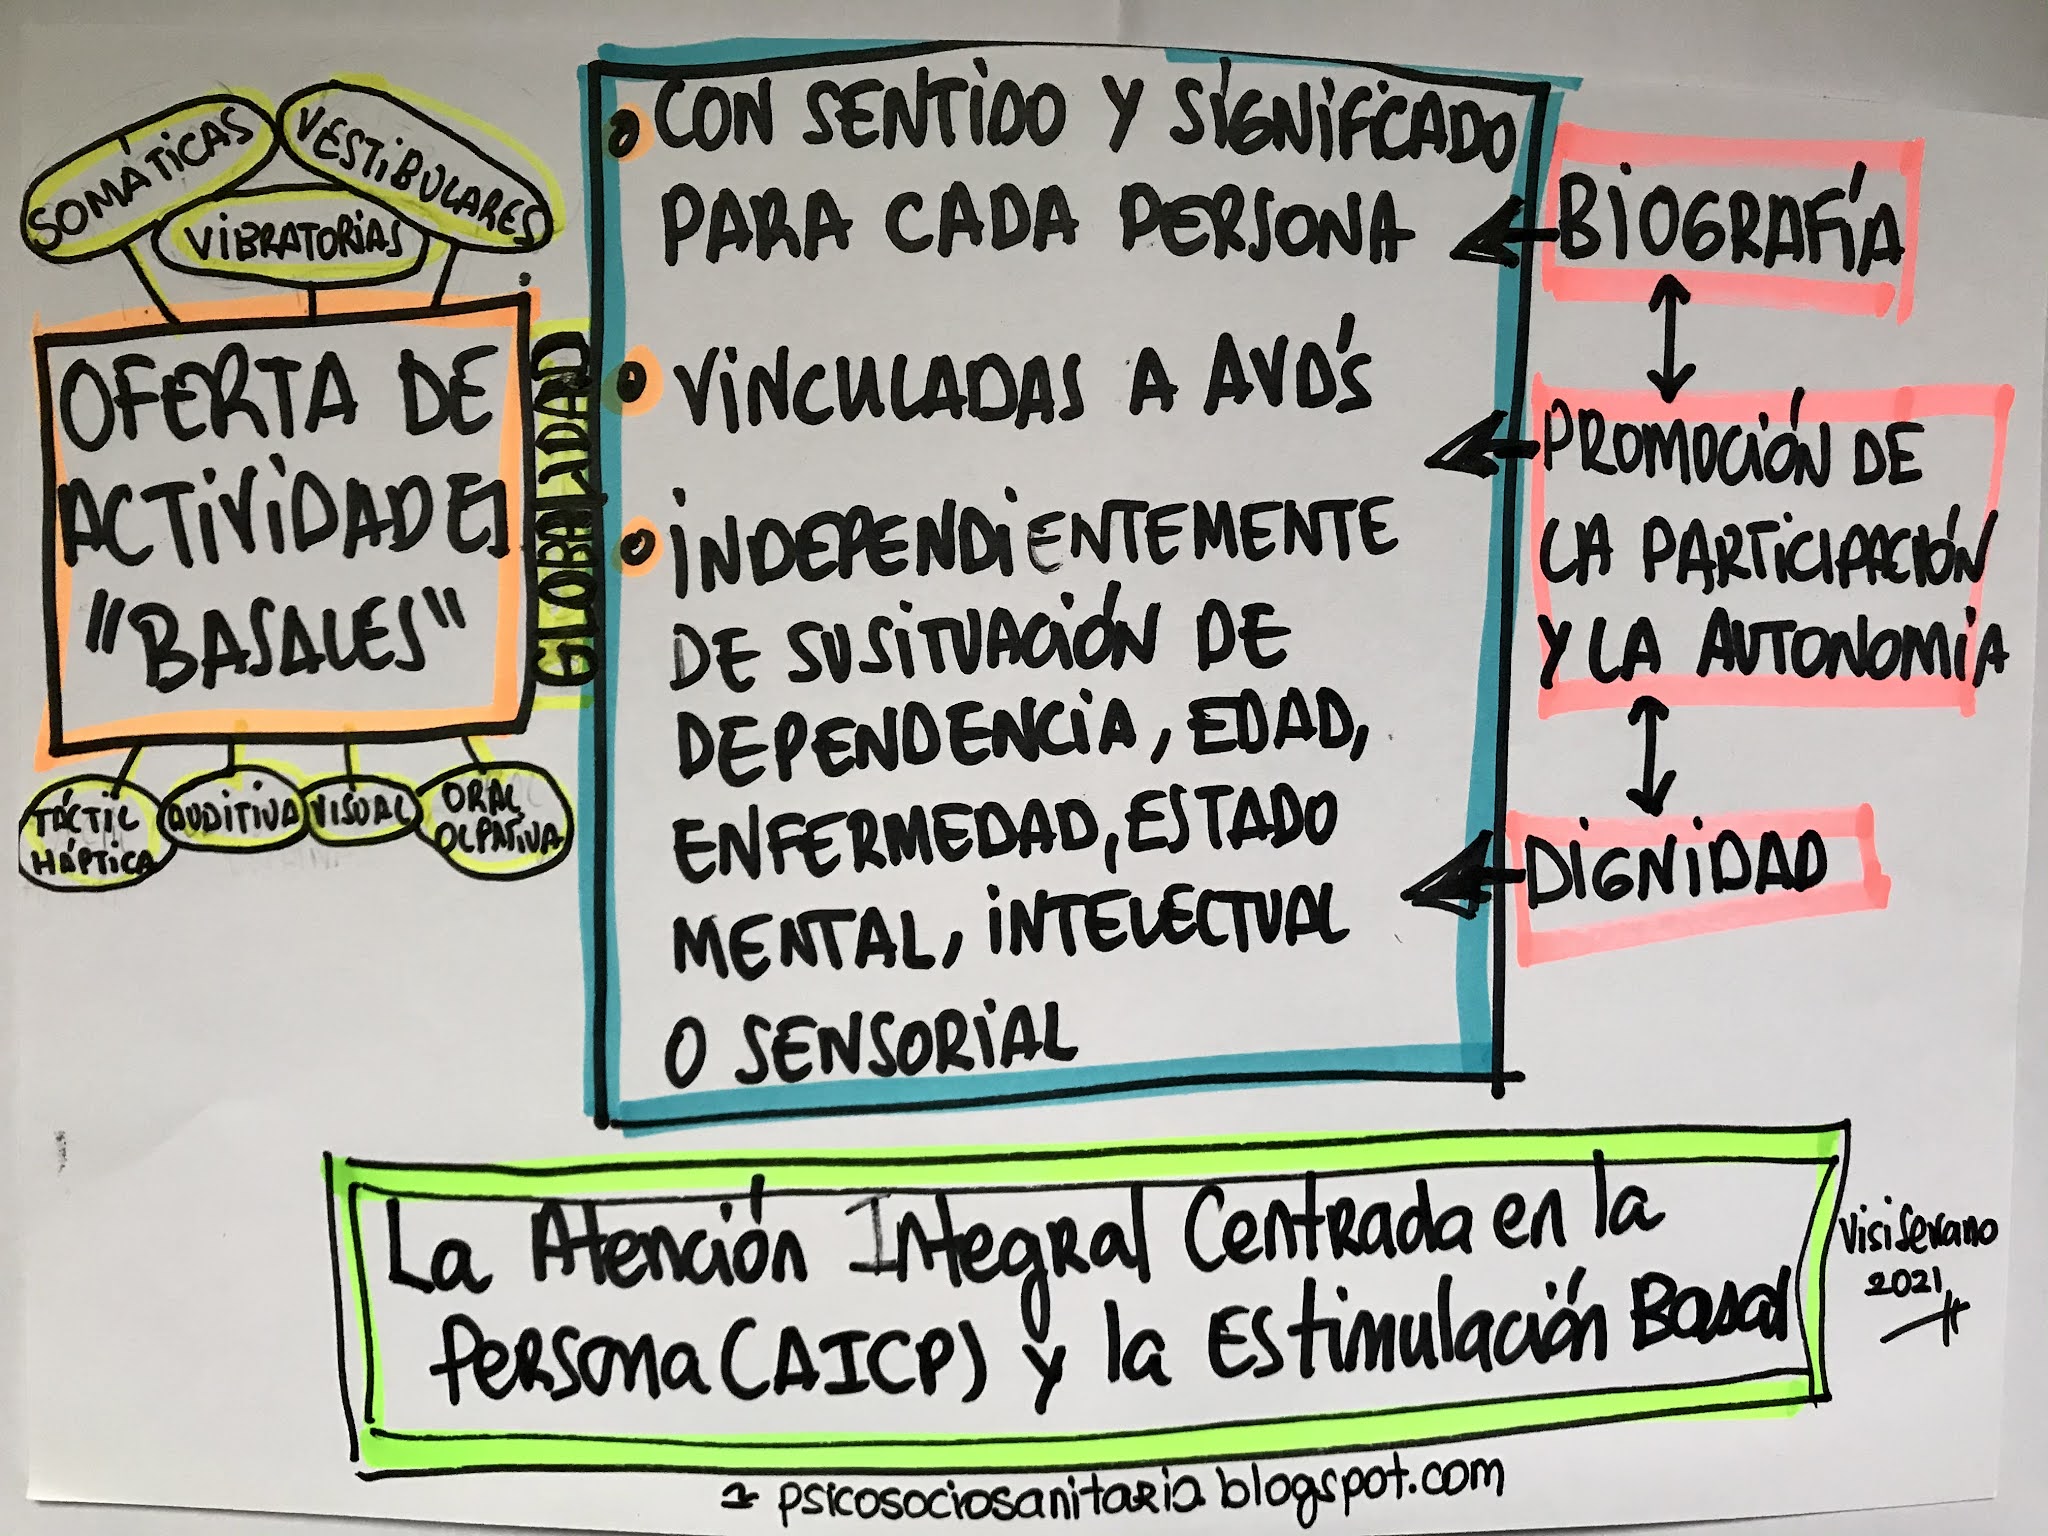 SOMÁTICAS
VESTIBULARES
VIBRATORIAS
OFERTA DE
ACTIVIDADES
"BASALES"
TÁCTIL
HÁPTICA
AUDITIVA
VISUAL
ORAL
OLFATIVA
GLOBALIDAD
CON SENTIDO Y SIGNIFICADO
PARA CADA PERSONA
VINCULADAS A AVD'S
INDEPENDIENTEMENTE
DE SU SITUACIÓN DE
DEPENDENCIA, EDAD,
ENFERMEDAD, ESTADO
MENTAL, INTELECTUAL
O SENSORIAL
BIOGRAFÍA
PROMOCIÓN DE
LA PARTICIPACIÓN
Y LA AUTONOMÍA
DIGNIDAD
La Atención Integral Centrada en la
Persona (AICP) y la Estimulación Basal
Visi Serrano
2021
psicosociosanitaria.blogspot.com